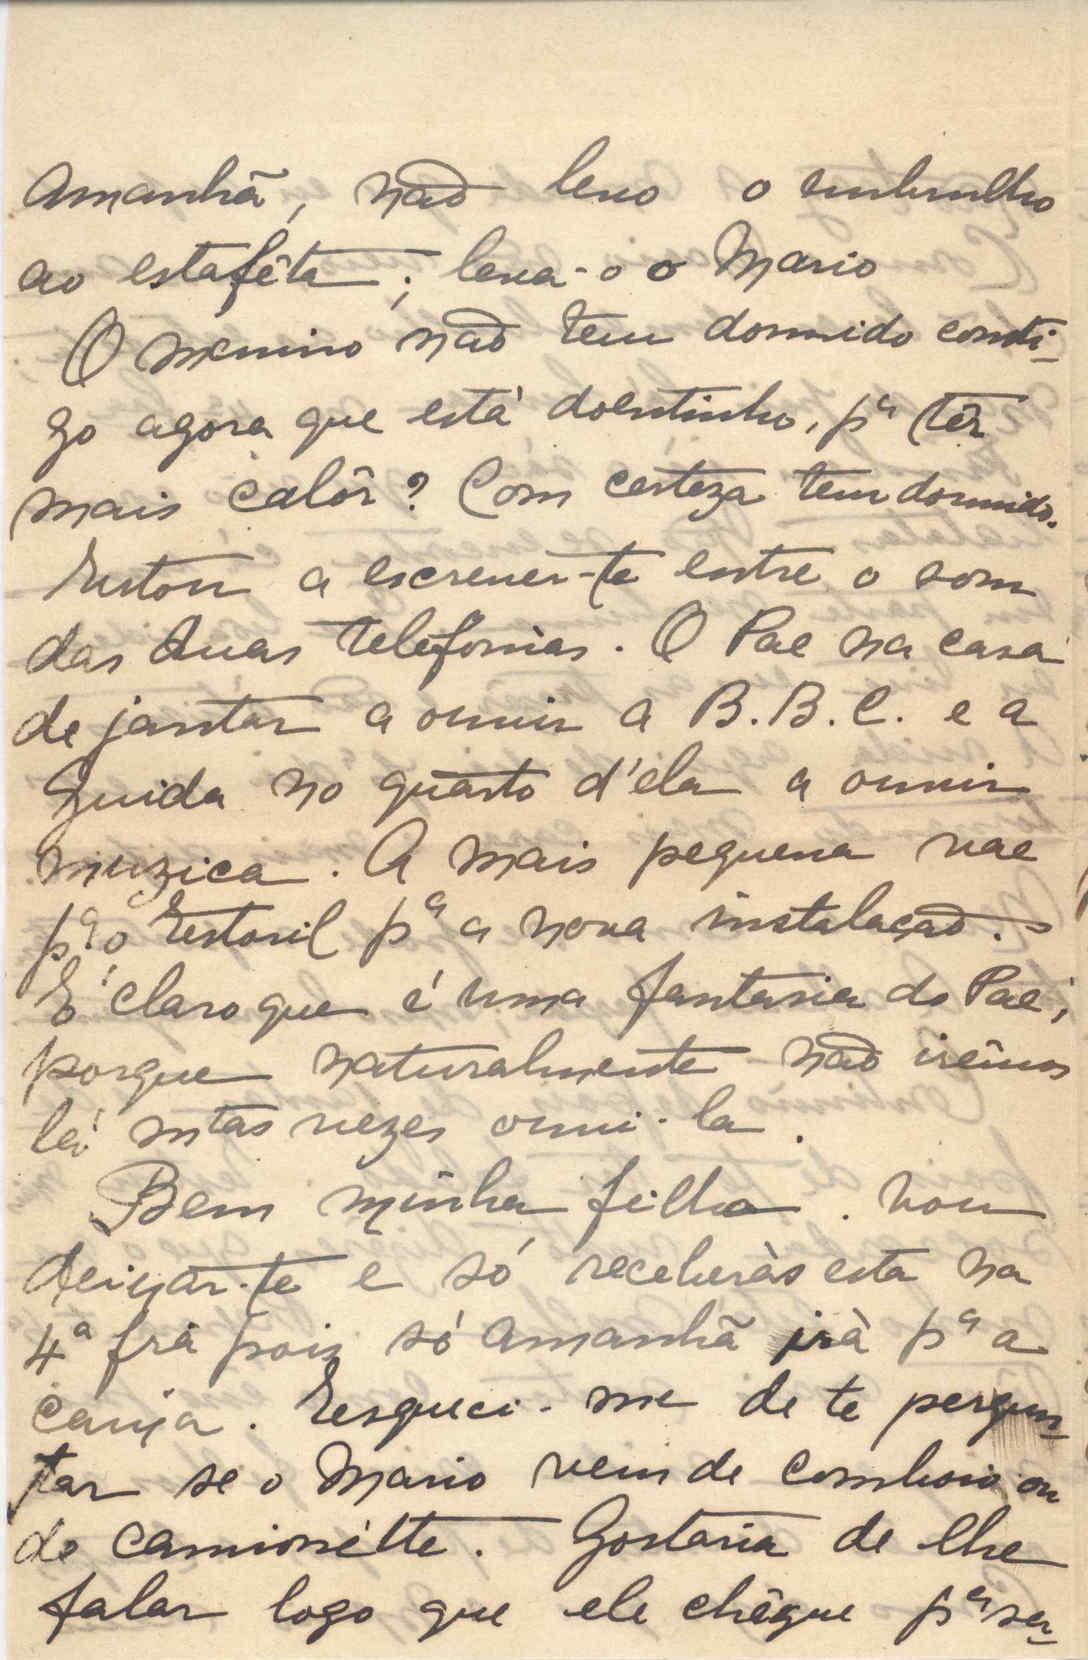 Amanhã, não levo o embrulho
ao estafêta; leva-o o Mario
O menino não tem dormido conti-
go agora que está doentinho, pª têr
mais calôr? Com certeza tem dormido.
Estou a escrever-te entre o som
das duas telefonias. O Pae na casa
de jantar a ouvir a B.B.C. e a
Guida no quarto d'ela a ouvir
muzica. A mais pequena vae
pª o Estoril pª a nova instalação. -
É claro que é uma fantasia do Pae;
porque naturalmente não irêmos
lá mtas vezes ouvi-la.
Bem minha filha. Vou
deixar-te e só receberàs esta na
4ª frã pois só amanhã irà pª a
caixa. Esqueci-me de te pergun-
tar se o Mario vem de comboio ou
de camionétte. Gostaria de lhe
falar logo que ele chêgue pª sa-